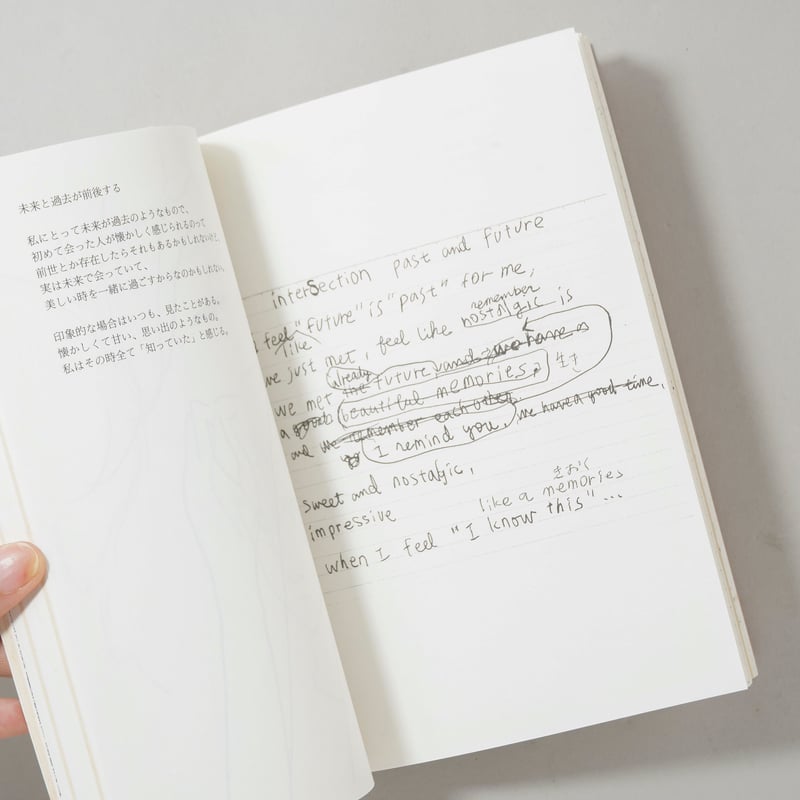 未来と過去が前後する
私にとって未来が過去のようなもので、
初めて会った人が懐かしく感じられるのって
前世とか存在したらそれもあるかもしれないけど、
実は未来で会っていて、
美しい時を一緒に過ごすからなのかもしれない。
印象的な場合はいつも、見たことがある。
懐かしくて甘い、思い出のようなもの。
私はその時全て「知っていた」と感じる。
interSection past and future
feel "future" is "past" for me,
like
remember
we just met, feel like nostalgic is
already
we met the future, and we have a
a good beautiful memories,
and we remember each other, we have a good time,
I remind you,
sweet and nostalgic,
きおく
impressive like a memories
when I feel "I know this"...